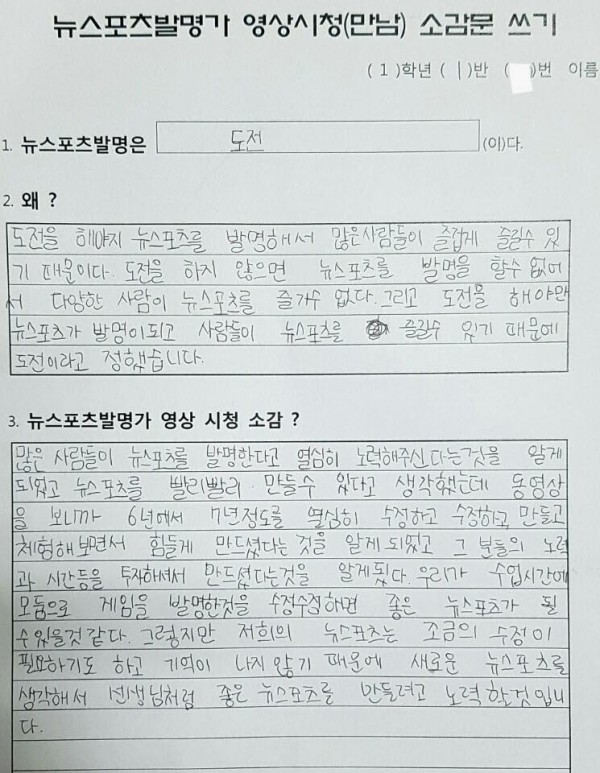 뉴스포츠발명가 영상시청(만남) 소감문 쓰기
( 1 )학년 ( 1 )반 ( )번 이름
1. 뉴스포츠발명은 도전 (이)다.
2. 왜 ?
도전을 해야지 뉴스포츠를 발명해서 많은사람들이 즐겁게 즐길수 있
기 때문이다. 도전을 하지 않으면 뉴스포츠를 발명을 할수 없어
서 다양한 사람이 뉴스포츠를 즐기수 없다. 그리고 도전을 해야만
뉴스포츠가 발명이되고 사람들이 뉴스포츠를 즐길수 있기 때문에
도전이라고 정했습니다.
3. 뉴스포츠발명가 영상 시청 소감 ?
많은 사람들이 뉴스포츠를 발명한다고 열심히 노력해주신다는것을 알게
되었고 뉴스포츠를 빨리빨리 만들수 있다고 생각했는데 동영상
을 보니까 6년에서 7년정도를 열심히 수정하고 수정하고 만들고
체험해보면서 힘들게 만드셨다는 것을 알게 되었고 그 분들의 노력
과 시간등을 투자하셔서 만드셨다는것을 알게됬다. 우리가 수업시간에
모둠으로 게임을 발명한것을 수정수정하면 좋은 뉴스포츠가 될
수있을것 같다. 그렇지만 저희의 뉴스포츠는 조금의 수정이
필요하기도 하고 기억이 나지 않기 때문에 새로운 뉴스포츠를
생각해서 선생님처럼 좋은 뉴스포츠를 만들려고 노력할것입니
다.